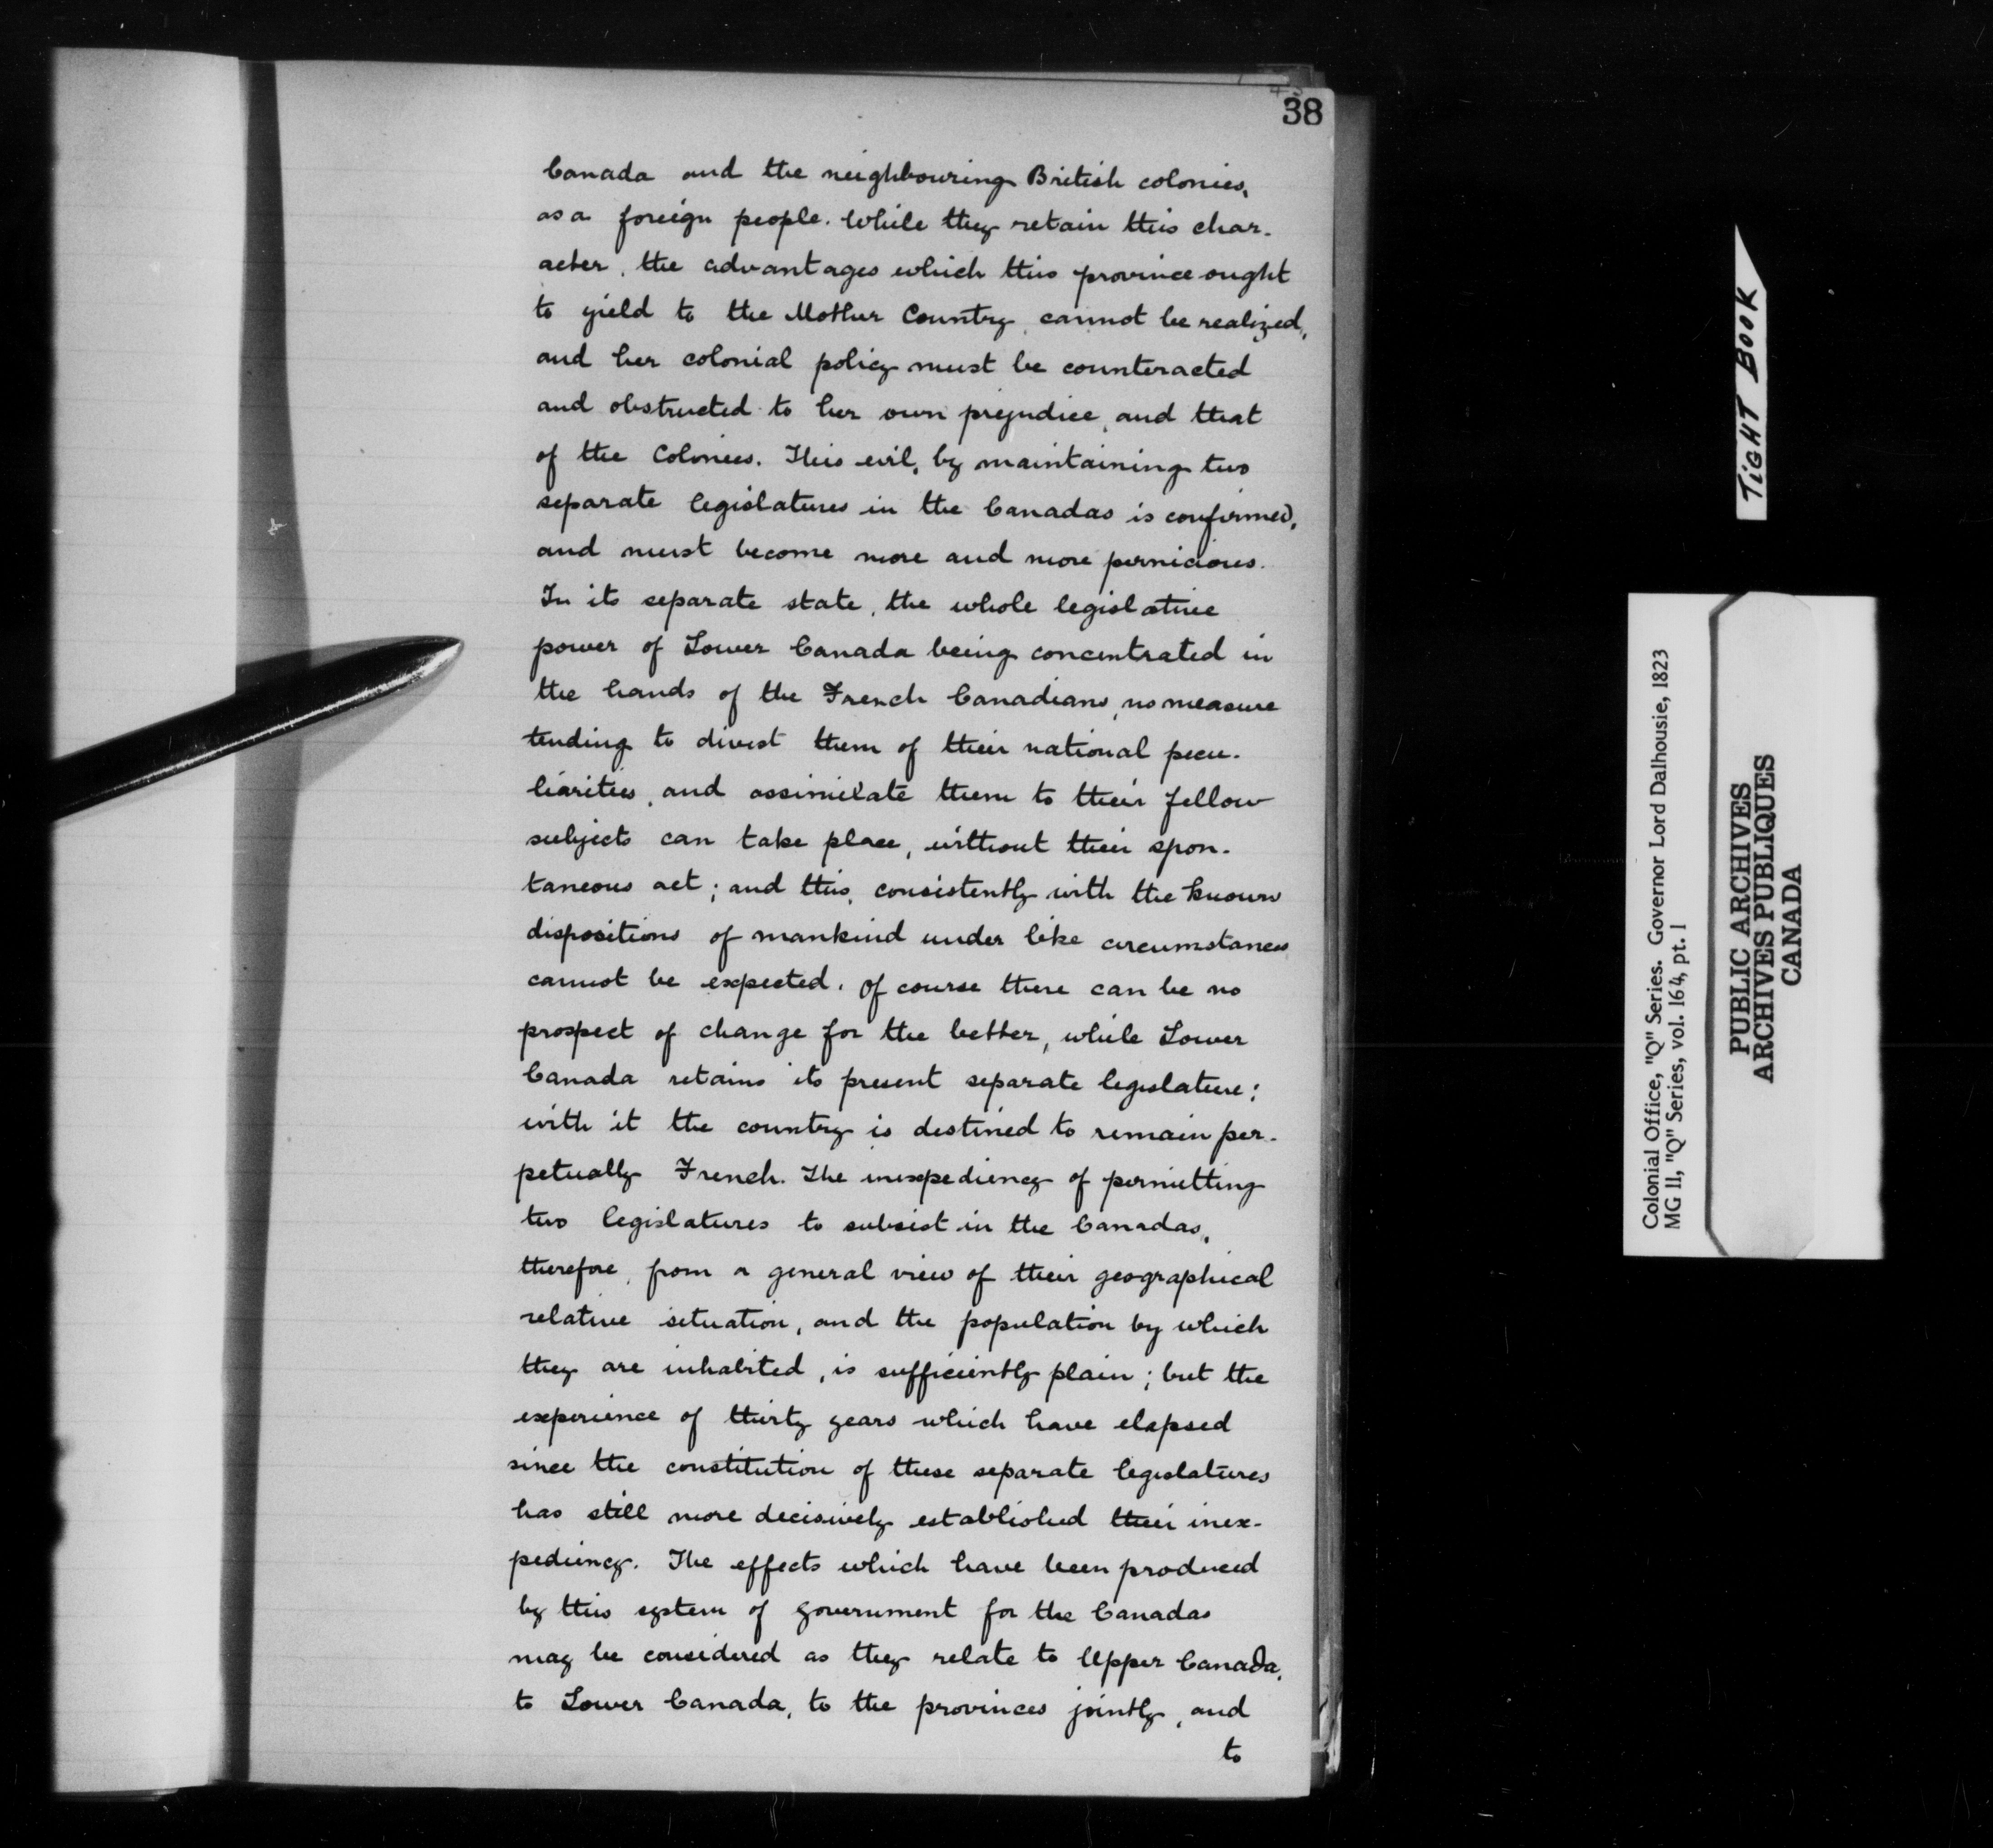 38
Canada and the neighbouring British colonies,
as a foreign people. While they retain this char-
acter, the advantages which this province ought
to yield to the Mother Country, cannot be realized,
and her colonial policy must be counteracted
and obstructed to her own prejudice, and that
of the Colonies. This evil, by maintaining two
separate legislatures in the Canadas is confirmed,
and must become more and more pernicious.
In its separate state, the whole legislative
power of Lower Canada being concentrated in
the hands of the French Canadians, no measure
tending to divest them of their national pecu-
liarities, and assimilate them to their fellow
subjects can take place, without their spon-
taneous act; and this, consistently with the known
dispositions of mankind under like circumstances
cannot be expected. Of course there can be no
prospect of change for the better, while Lower
Canada retains its present separate legislature:
with it the country is destined to remain per-
petually French. The inexpediency of permitting
two legislatures to subsist in the Canadas,
therefore, from a general view of their geographical
relative situation, and the population by which
they are inhabited, is sufficiently plain; but the
experience of thirty years which have elapsed
since the constitution of these separate legislatures
has still more decisively established their inex-
pediency. The effects which have been produced
by this system of government for the Canadas
may be considered as they relate to Upper Canada,
to Lower Canada, to the provinces jointly, and
to
TIGHT BOOK
Colonial Office, "Q" Series. Governor Lord Dalhousie, 1823
MG 11, "Q" Series, vol. 164, pt. 1
PUBLIC ARCHIVES
ARCHIVES PUBLIQUES
CANADA